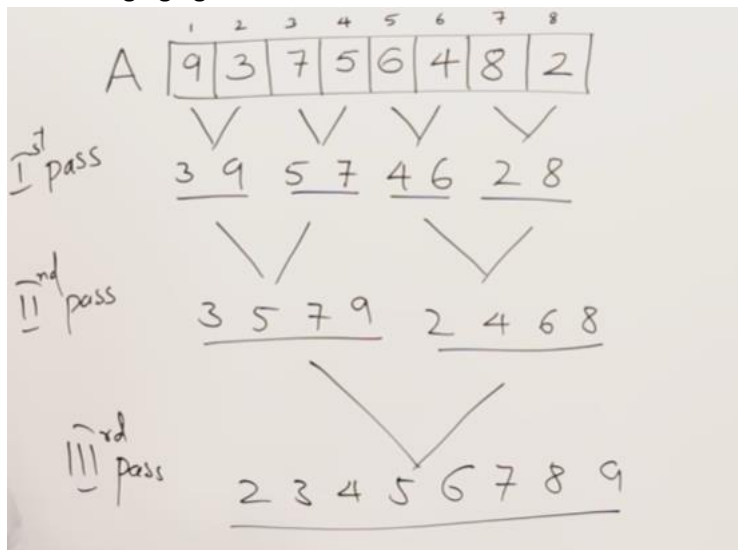 1 2 3 4 5 6 7 8
A 9 3 7 5 6 4 8 2
I st pass 3 9 5 7 4 6 2 8
II nd pass 3 5 7 9 2 4 6 8
III rd pass 2 3 4 5 6 7 8 9